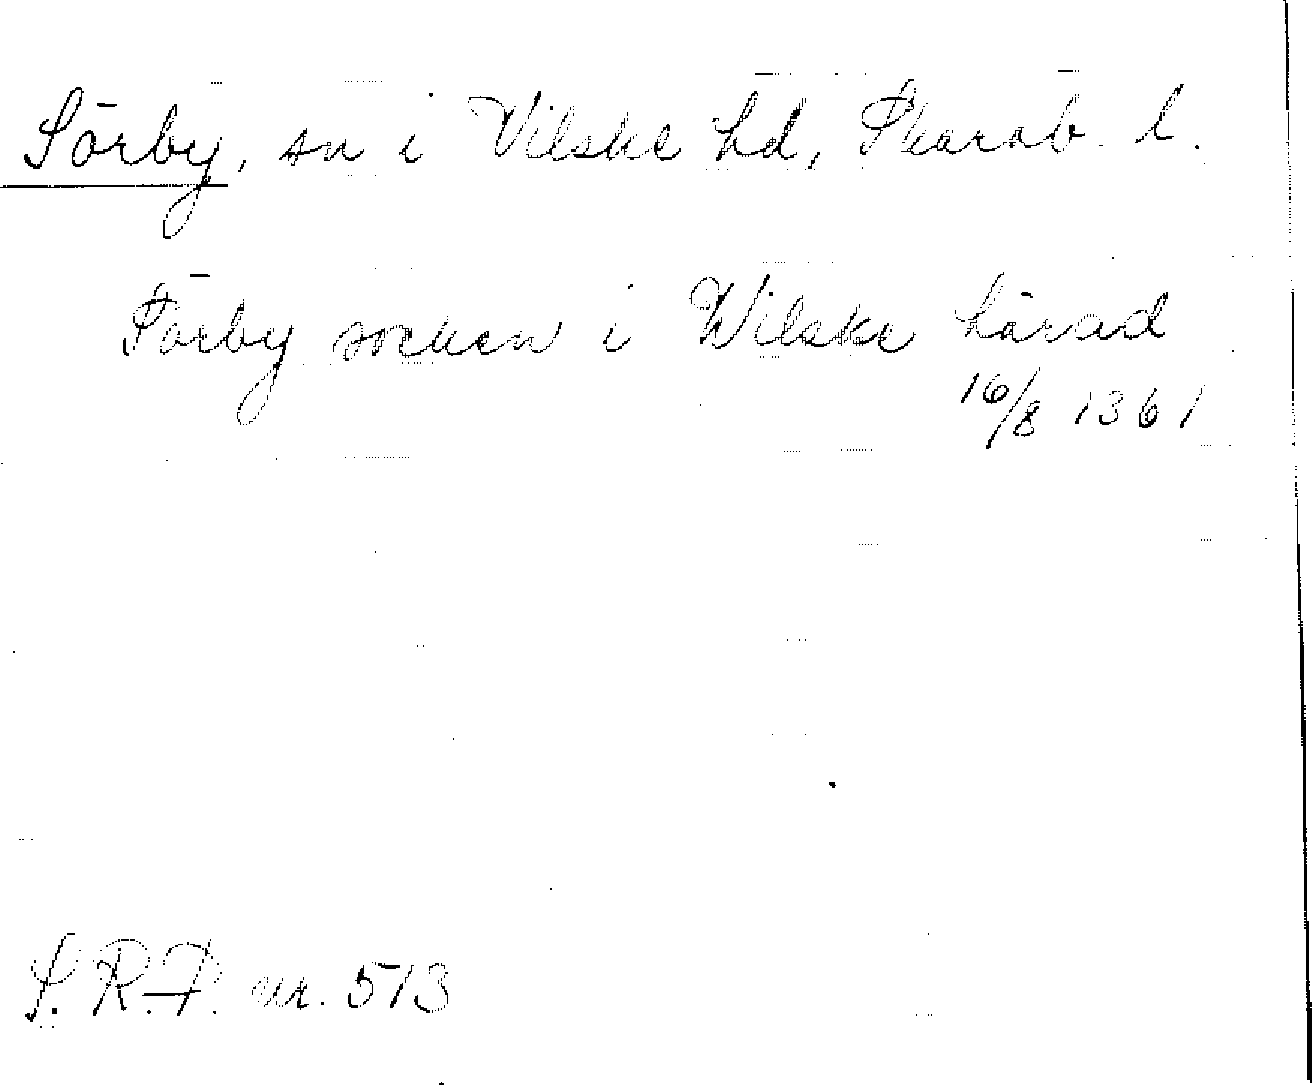 Sörby, sn i Vilske hd, Skarab. l.
Sörby socken i Wilske härad
16/8 1361
S.R.P. nr. 513